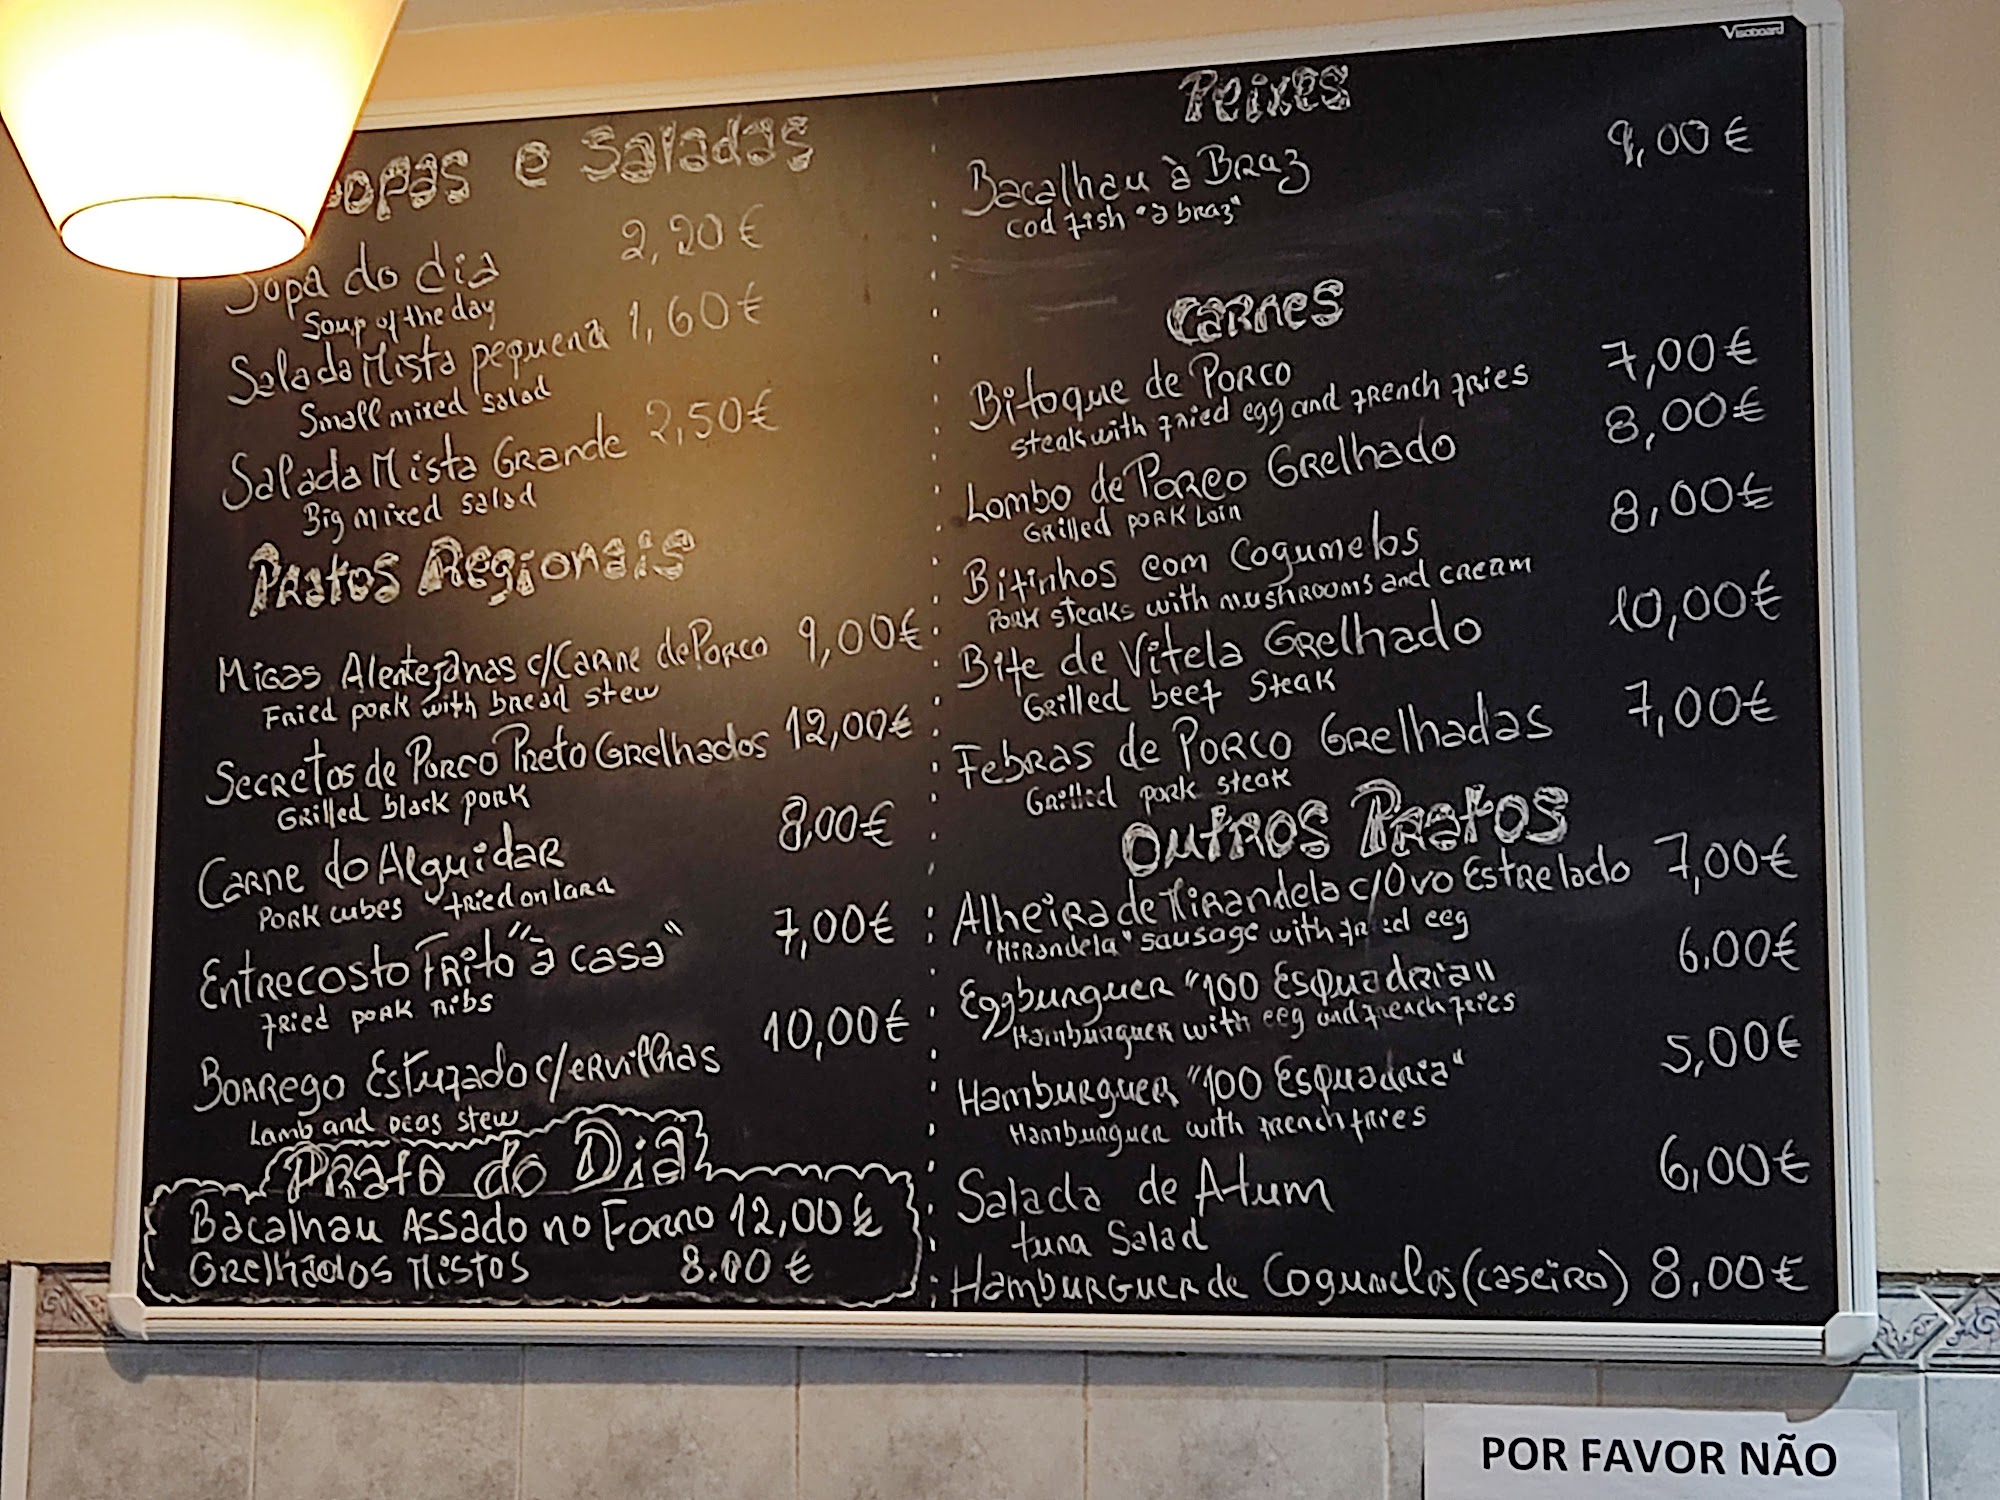 Sopas e Saladas
Sopa do dia 2,20€
Soup of the day
Salada Mista pequena 1,60€
Small mixed salad
Salada Mista Grande 2,50€
Big mixed salad
Pratos Regionais
Migas Alentejanas c/Carne de Porco 9,00€
Fried pork with bread stew
Secretos de Porco Preto Grelhados 12,00€
Grilled black pork
Carne do Alguidar 8,00€
Pork cubes fried on lard
Entrecosto Frito "à casa" 7,00€
Fried pork ribs
Borrego Estufado c/ervilhas 10,00€
Lamb and peas stew
Prato do Dia
Bacalhau Assado no Forno 12,00€
Grelhados Mistos 8.00€
Visoboard
Peixes
Bacalhau à Braz 9,00€
Cod fish "à braz"
Carnes
Bitoque de Porco 7,00€
steak with fried egg and french fries
Lombo de Porco Grelhado 8,00€
Grilled pork Loin
Bifinhos com Cogumelos 8,00€
Pork steaks with mushrooms and cream
Bife de Vitela Grelhado 10,00€
Grilled beef Steak
Febras de Porco Grelhadas 7,00€
Grilled pork steak
Outros Pratos
Alheira de Mirandela c/Ovo Estrelado 7,00€
"Mirandela" sausage with fried eeg
Eggburguer "100 Esquadria" 6.00€
Hamburguer with eeg and french fries
Hamburguer "100 Esquadria" 5,00€
Hamburguer with french fries
Salada de Atum 6,00€
tuna Salad
Hamburguer de Cogumelos (caseiro) 8,00€
POR FAVOR NÃO